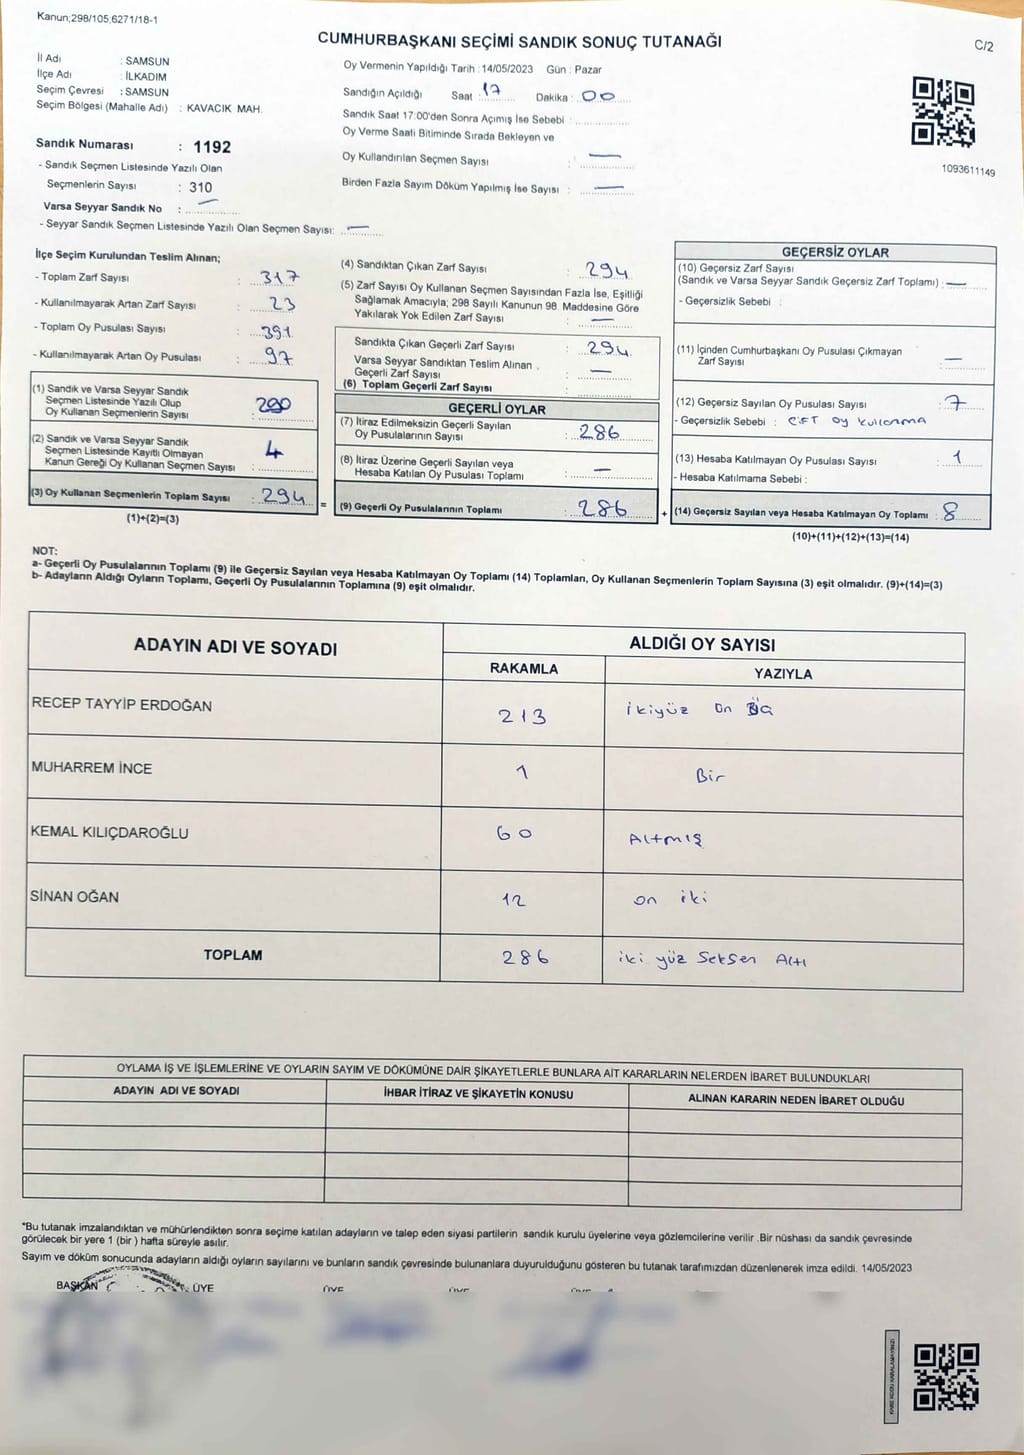 Kanun;298/105,6271/18-1
CUMHURBAŞKANI SEÇİMİ SANDIK SONUÇ TUTANAĞI
C/2
İl Adı : SAMSUN
İlçe Adı : İLKADIM
Seçim Çevresi : SAMSUN
Seçim Bölgesi (Mahalle Adı) : KAVACIK MAH.
Sandık Numarası : 1192
- Sandık Seçmen Listesinde Yazılı Olan
Seçmenlerin Sayısı : 310
Varsa Seyyar Sandık No : —
- Seyyar Sandık Seçmen Listesinde Yazılı Olan Seçmen Sayısı: —
Oy Vermenin Yapıldığı Tarih : 14/05/2023 Gün : Pazar
Sandığın Açıldığı Saat : 17 Dakika : 00
Sandık Saat 17:00'den Sonra Açımış İse Sebebi :
Oy Verme Saati Bitiminde Sırada Bekleyen ve
Oy Kullandırılan Seçmen Sayısı : —
Birden Fazla Sayım Döküm Yapılmış İse Sayısı : —
1093611149
İlçe Seçim Kurulundan Teslim Alınan;
- Toplam Zarf Sayısı : 317
- Kullanılmayarak Artan Zarf Sayısı : 23
- Toplam Oy Pusulası Sayısı : 391
- Kullanılmayarak Artan Oy Pusulası : 97
(1) Sandık ve Varsa Seyyar Sandık
Seçmen Listesinde Yazılı Olup
Oy Kullanan Seçmenlerin Sayısı : 290
(2) Sandık ve Varsa Seyyar Sandık
Seçmen Listesinde Kayıtlı Olmayan
Kanun Gereği Oy Kullanan Seçmen Sayısı : 4
(3) Oy Kullanan Seçmenlerin Toplam Sayısı : 294 =
(1)+(2)=(3)
(4) Sandıktan Çıkan Zarf Sayısı : 294
(5) Zarf Sayısı Oy Kullanan Seçmen Sayısından Fazla İse, Eşitliği
Sağlamak Amacıyla; 298 Sayılı Kanunun 98. Maddesine Göre
Yakılarak Yok Edilen Zarf Sayısı : —
Sandıkta Çıkan Geçerli Zarf Sayısı : 294
Varsa Seyyar Sandıktan Teslim Alınan
Geçerli Zarf Sayısı : —
(6) Toplam Geçerli Zarf Sayısı :
GEÇERLİ OYLAR
(7) İtiraz Edilmeksizin Geçerli Sayılan
Oy Pusulalarının Sayısı : 286
(8) İtiraz Üzerine Geçerli Sayılan veya
Hesaba Katılan Oy Pusulası Toplamı : —
(9) Geçerli Oy Pusulalarının Toplamı : 286 +
GEÇERSİZ OYLAR
(10) Geçersiz Zarf Sayısı
(Sandık ve Varsa Seyyar Sandık Geçersiz Zarf Toplamı) : —
- Geçersizlik Sebebi :
(11) İçinden Cumhurbaşkanı Oy Pusulası Çıkmayan
Zarf Sayısı : —
(12) Geçersiz Sayılan Oy Pusulası Sayısı : 7
- Geçersizlik Sebebi : Çift oy kullanma
(13) Hesaba Katılmayan Oy Pusulası Sayısı : 1
- Hesaba Katılmama Sebebi :
(14) Geçersiz Sayılan veya Hesaba Katılmayan Oy Toplamı : 8
(10)+(11)+(12)+(13)=(14)
NOT:
a- Geçerli Oy Pusulalarının Toplamı (9) ile Geçersiz Sayılan veya Hesaba Katılmayan Oy Toplamı (14) Toplamları, Oy Kullanan Seçmenlerin Toplam Sayısına (3) eşit olmalıdır. (9)+(14)=(3)
b- Adayların Aldığı Oyların Toplamı, Geçerli Oy Pusulalarının Toplamına (9) eşit olmalıdır.
ADAYIN ADI VE SOYADI ALDIĞI OY SAYISI
RAKAMLA YAZIYLA
RECEP TAYYİP ERDOĞAN 213 ikiyüz on
MUHARREM İNCE 1 Bir
KEMAL KILIÇDAROĞLU 60 Altmış
SİNAN OĞAN 12 on iki
TOPLAM 286 iki yüz seksen Altı
OYLAMA İŞ VE İŞLEMLERİNE VE OYLARIN SAYIM VE DÖKÜMÜNE DAİR ŞİKAYETLERLE BUNLARA AİT KARARLARIN NELERDEN İBARET BULUNDUKLARI
ADAYIN ADI VE SOYADI İHBAR İTİRAZ VE ŞİKAYETİN KONUSU ALINAN KARARIN NEDEN İBARET OLDUĞU
*Bu tutanak imzalandıktan ve mühürlendikten sonra seçime katılan adayların ve talep eden siyasi partilerin sandık kurulu üyelerine veya gözlemcilerine verilir .Bir nüshası da sandık çevresinde
görülecek bir yere 1 (bir ) hafta süreyle asılır.
Sayım ve döküm sonucunda adayların aldığı oyların sayılarını ve bunların sandık çevresinde bulunanlara duyurulduğunu gösteren bu tutanak tarafımızdan düzenlenerek imza edildi. 14/05/2023
BAŞKAN ÜYE ÜYE ÜYE ÜYE